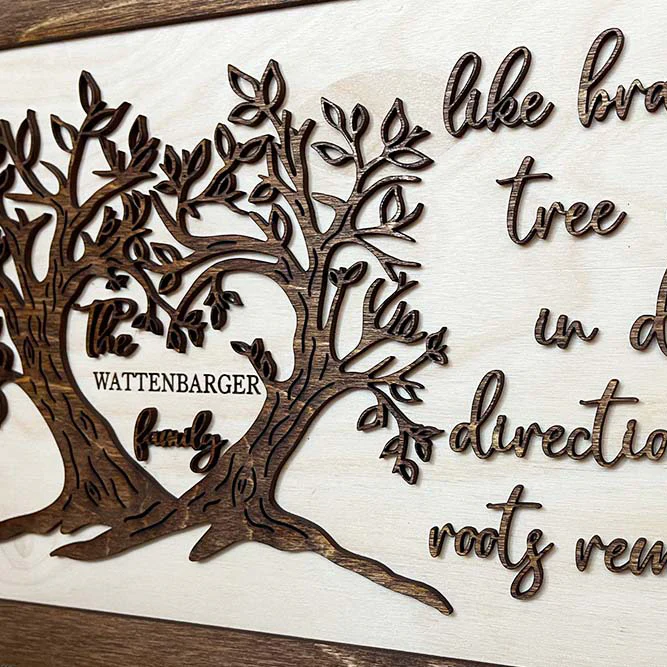 The
WATTENBARGER
family
like bra
tree
in d
directio
roots rem